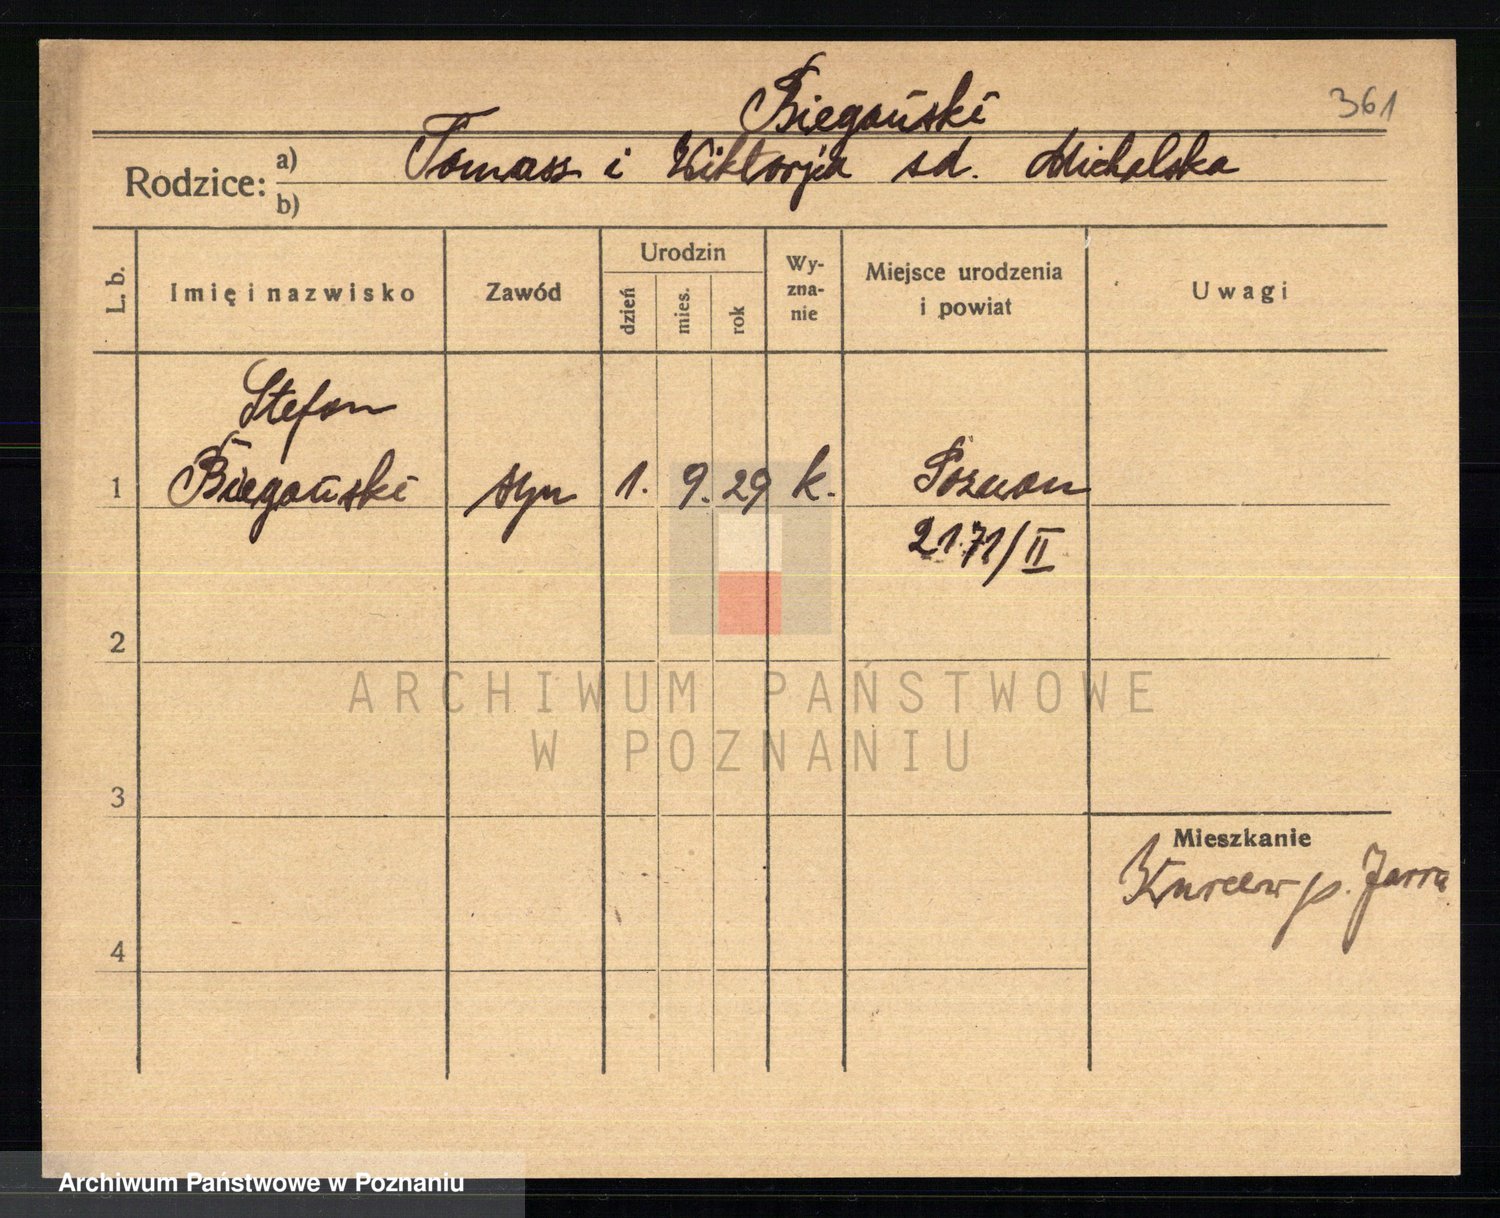 361
Biegański
Rodzice: a) Tomasz i Wiktorja sd. Michalska
b)
L. b.
Imię i nazwisko
Zawód
Urodzin
dzień
mies.
rok
Wy-
zna-
nie
Miejsce urodzenia
i powiat
Uwagi
Stefan
1 Biegański syn 1. 9. 29 k. Poznan
2171/II
2
ARCHIWUM PAŃSTWOWE
W POZNANIU
3
Mieszkanie
p.
4
Archiwum Państwowe w Poznaniu